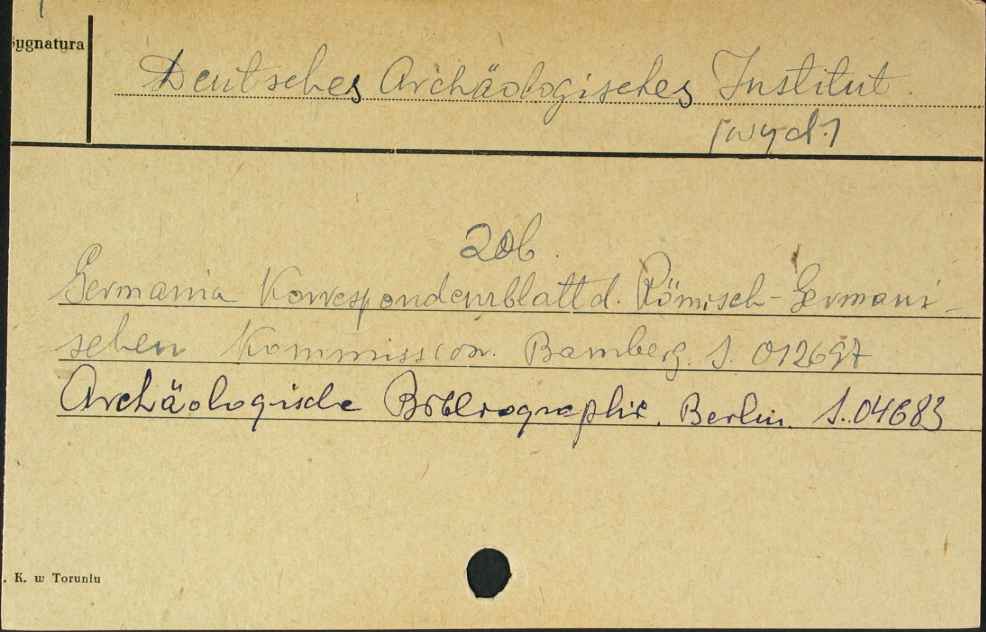 Sygnatura
Deutsches Archäologisches Institut.
[wyd.]
Zob.
Germania Korrespondenzblatt d. Römisch-Germani-
schen Kommission. Bamberg. S. 012697
Archäologische Bibliographie. Berlin. S. 04683
. K. w Toruniu